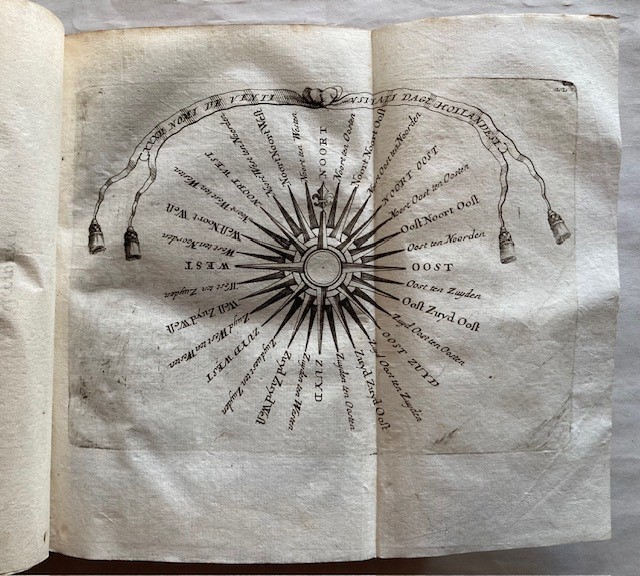 XXXII NOMI DE VENTI
VSITATI DAGL HOLLANDESI
NOORT
Noort ten Oosten
Noort Noort Ooſt
Oost ten Noorden
NOORT OOST
Noort Oost ten Oosten
Ooſt Noort Ooſt
Oost ten Noorden
OOST
Oost ten Zuyden
Ooſt Zuyd Ooſt
Zuyd Oost ten Oosten
OOST ZUYD
Oost ten Zuyden
Zuyd Zuyd Ooſt
Zuyden ten Oosten
ZUYD
Zuyden ten Westen
Zuyd Zuyd Weſt
Zuydwest ten Zuyden
ZUYD WEST
Zuyd West ten Westen
Weſt Zuyd Weſt
West ten Zuyden
WEST
West ten Noorden
Weſt Noort Weſt
Noor West ten Westen
NOORT WEST
Nor West ten Noorden
Noort Noort Weſt
Noor ten Westen